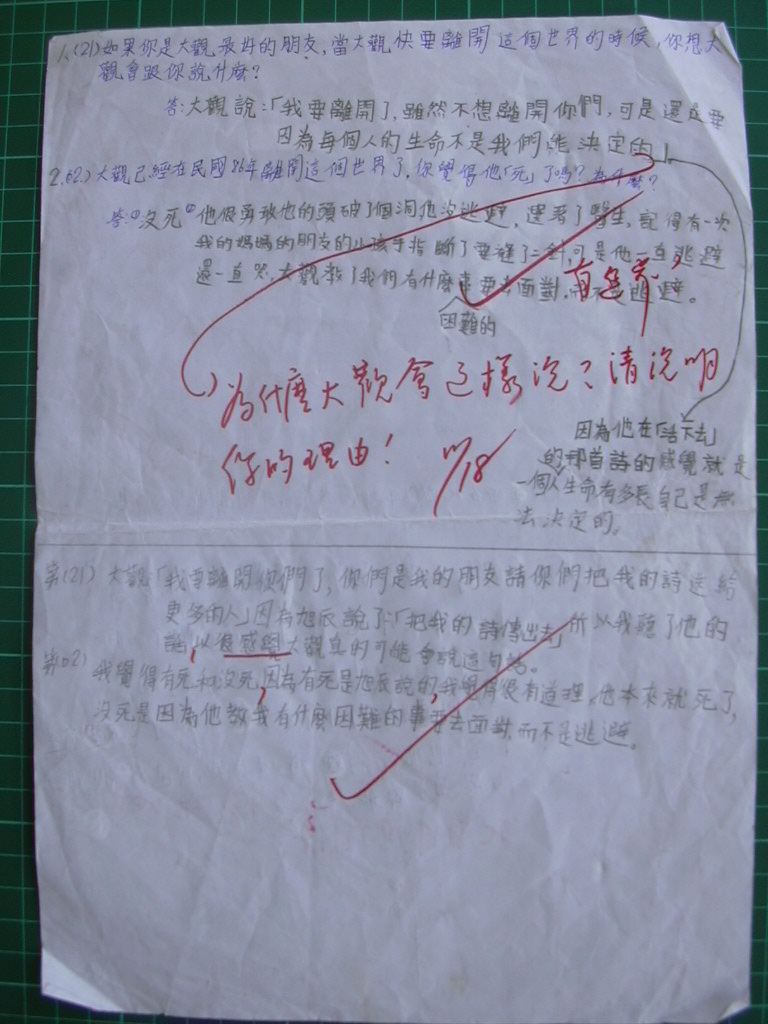 1.(21)如果你是大觀最好的朋友,當大觀快要離開這個世界的時候,你想大
觀會跟你說什麼?
答:大觀說:「我要離開了,雖然不想離開你們,可是還是要
因為每個人的生命不是我們能決定的」
2.(62)大觀已經在民國86年離開這個世界了,你覺得他「死」了嗎?為什麼?
答:沒死 他很勇敢他的頭破了個洞他沒逃避,還看了醫生,記得有一次
我的媽媽的朋友的小孩手指斷了要縫了二針,可是他一直逃避
還一直哭,大觀教了我們有什麼事要去面對,而不是逃避。
困難的
有進步
為什麼大觀會這樣說?請說明
你的理由!
11/18
因為他在「活下去」
的那首詩的感覺就是
一個人生命有多長自己是無
法決定的。
第(21) 大觀:「我要離開你們了,你們是我的朋友請你們把我的詩送給
更多的人」因為旭辰說了:「把我的詩傳出去」所以我聽了他的
話,以後感覺大觀真的可能會說這句話。
第(62) 我覺得有死和沒死,因為有死是旭辰說的我覺得很有道理,他本來就死了,
沒死是因為他教我有什麼困難的事要去面對,而不是逃避。